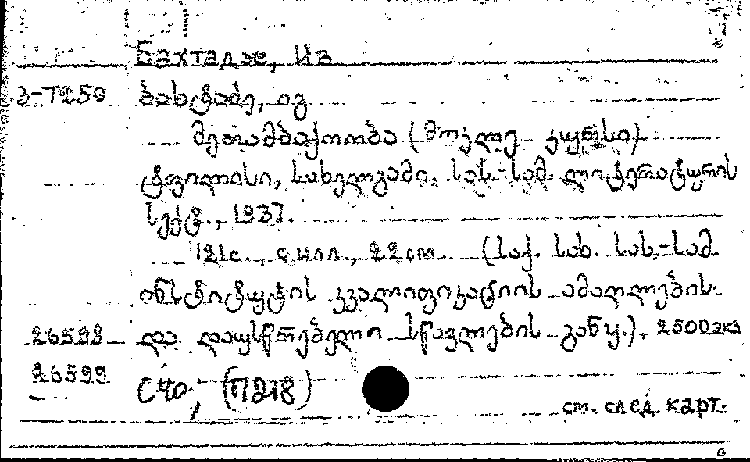 Бахтадзе, Из
ბ-7259 ბახტაძე, იგ
მეთამბაქოობა (მოკლე კურსი)
ტფილისი, სახელგამი, სას.-სამ. ლიტერატურის
სექტ., 1937.
121с., с илл., 22 см. (საქ. სას. სას.-სამ.
ინსტიტუტის კვალიფიკაციის ამაღლების
26598 და დაუსწრებელი სწავლების განყ.). 2500 экз
26599 С40; (П218)
см. след. карт.